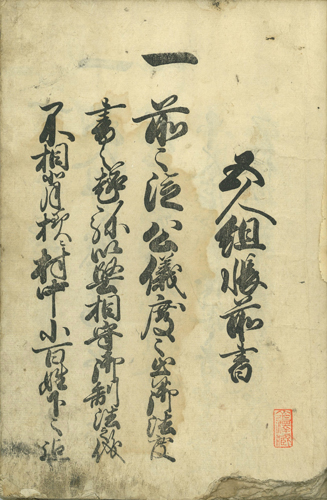 五人組帳前書
一前々従公儀度々出御法度
書之趣弥以堅相守御制法儀
不相背様ニ村中小百姓下々迄